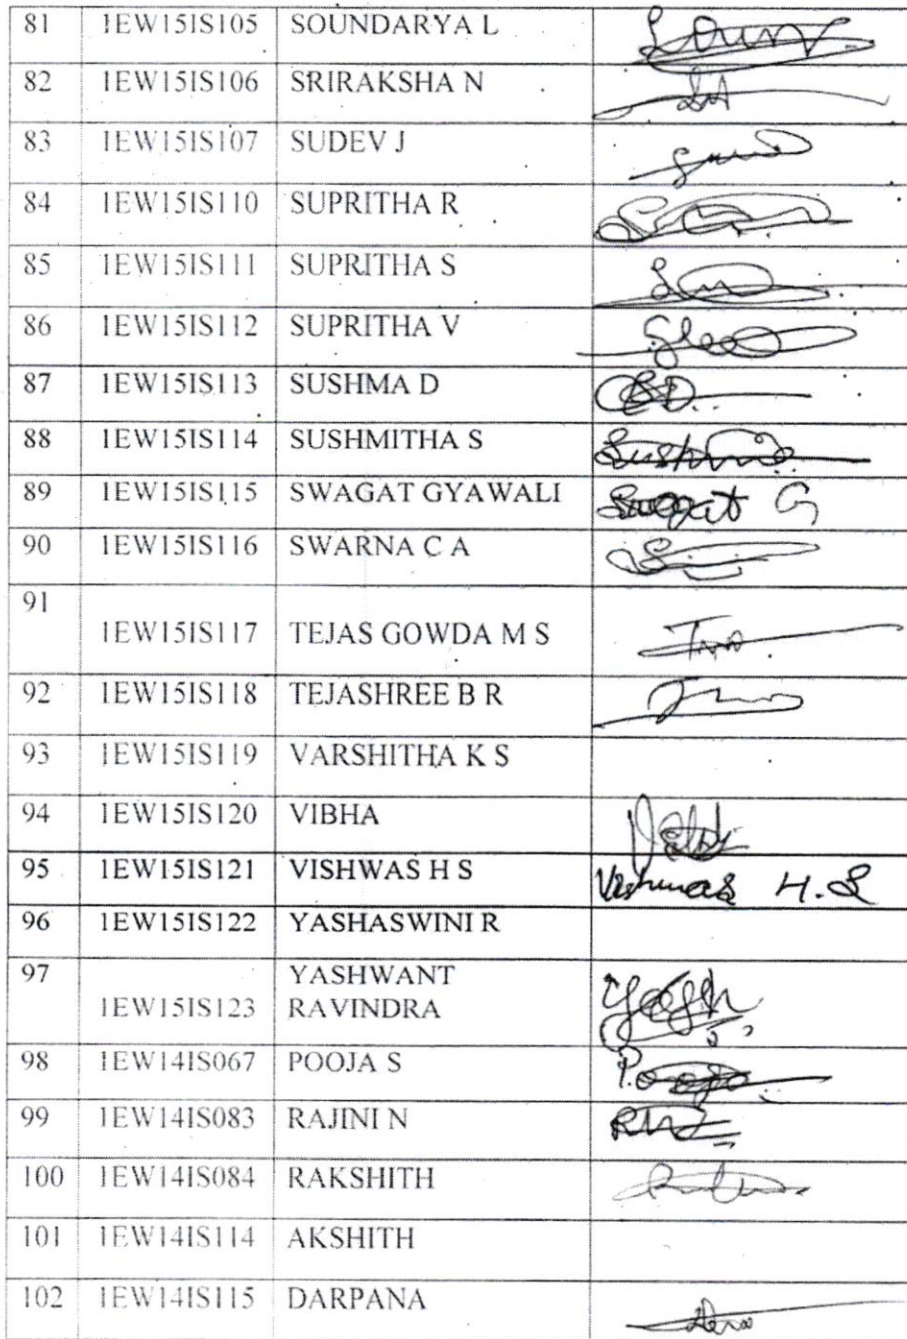 81 1EW15IS105 SOUNDARYA L
82 1EW15IS106 SRIRAKSHA N
83 1EW15IS107 SUDEV J
84 1EW15IS110 SUPRITHA R
85 1EW15IS111 SUPRITHA S
86 1EW15IS112 SUPRITHA V
87 1EW15IS113 SUSHMA D
88 1EW15IS114 SUSHMITHA S
89 1EW15IS115 SWAGAT GYAWALI Swagat G
90 1EW15IS116 SWARNA C A
91
1EW15IS117 TEJAS GOWDA M S
92 1EW15IS118 TEJASHREE B R
93 1EW15IS119 VARSHITHA K S
94 1EW15IS120 VIBHA
95 1EW15IS121 VISHWAS H S Vishwas H.S
96 1EW15IS122 YASHASWINI R
97 YASHWANT
1EW15IS123 RAVINDRA Yash
98 1EW14IS067 POOJA S Pooja
99 1EW14IS083 RAJINI N
100 1EW14IS084 RAKSHITH
101 1EW14IS114 AKSHITH
102 1EW14IS115 DARPANA